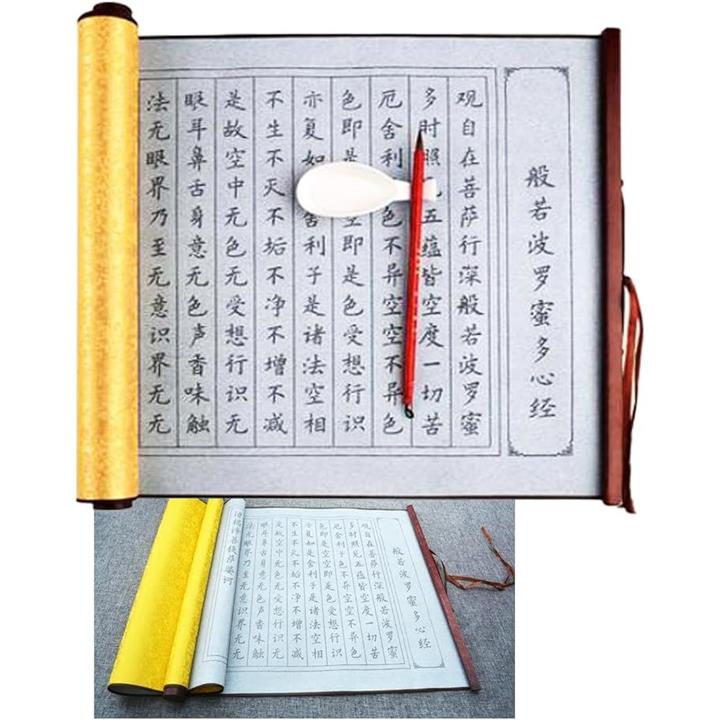 般若波罗蜜多心经
观自在菩萨行深般若波罗蜜
多时照五蕴皆空度一切苦
厄舍利色不异空空不异色
色即是空即是色受想行识
亦复如舍利子是诸法空相
不生不灭不垢不净不增不减
是故空中无色无受想行识无
眼耳鼻舌身意无色声香味触
法无眼界乃至无意识界无无
般若波罗蜜多心经
观自在菩萨行深般若波罗蜜
多时照见五蕴皆空度一切苦
厄舍利子色不异空空不异色
色即是空空即是色受想行识
亦复如是舍利子是诸法空相
不生不灭不垢不净不增不减
是故空中无色无受想行识无
眼耳鼻舌身意无色声香味触
法无眼界乃至无意识界无无